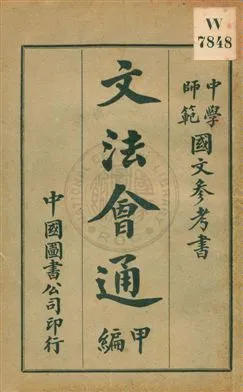 W
7848
中學
師範
國文參考書
文法會通
甲編
中國圖書公司印行